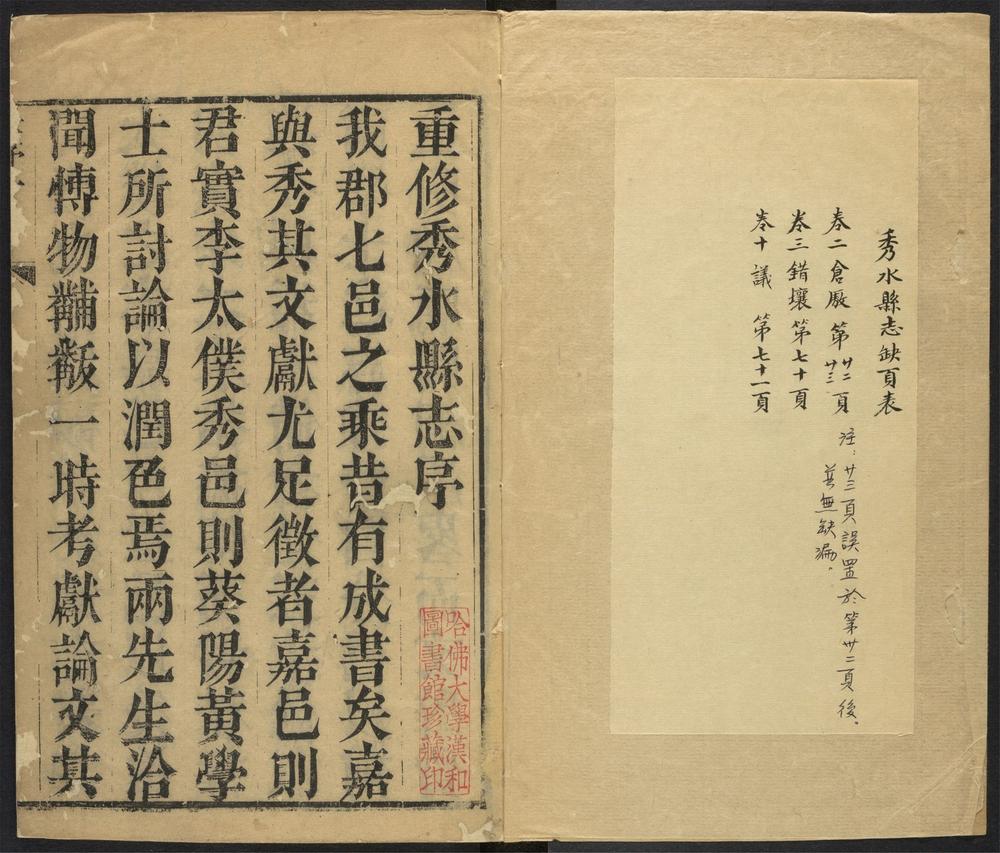 秀水縣志缺頁表
卷二 倉廒 第廿二廿三頁
注：廿三頁誤置於第卅二頁後。
並無缺漏。
卷三 錯壤 第七十頁
卷十 議 第七十一頁
重修秀水縣志序
我郡七邑之乘昔有成書矣嘉
與秀其文獻尤足徵者嘉邑則
君實李太僕秀邑則葵陽黃學
士所討論以潤色焉兩先生洽
聞愽物黼黻一時考獻論文其
哈佛大學漢和
圖書館珍藏印